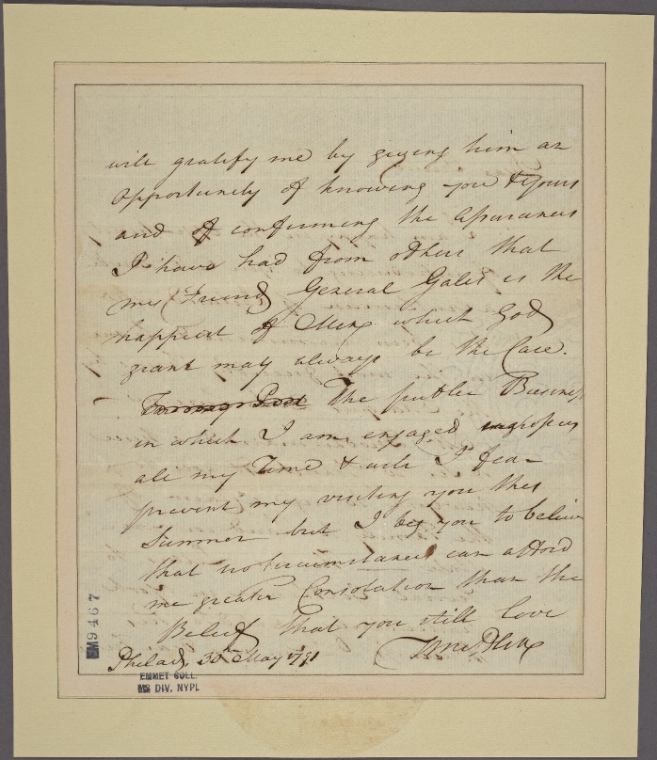 will gratify me by giving him an
opportunity of knowing you & yours
and of confirming the Assurances
I have had from others that
my Friend General Gates is the
happiest of Men which God
grant may always be the Case.
The public Business
in which I am engaged ingrosses
all my Time & will I fear
prevent my visiting you this
Summer but I beg you to believe
that no Circumstances can afford
me greater Consolation than the
Belief that you still love
Philad 30th May 1791
EM9467
EMMET COLL.
MS DIV. NYPL